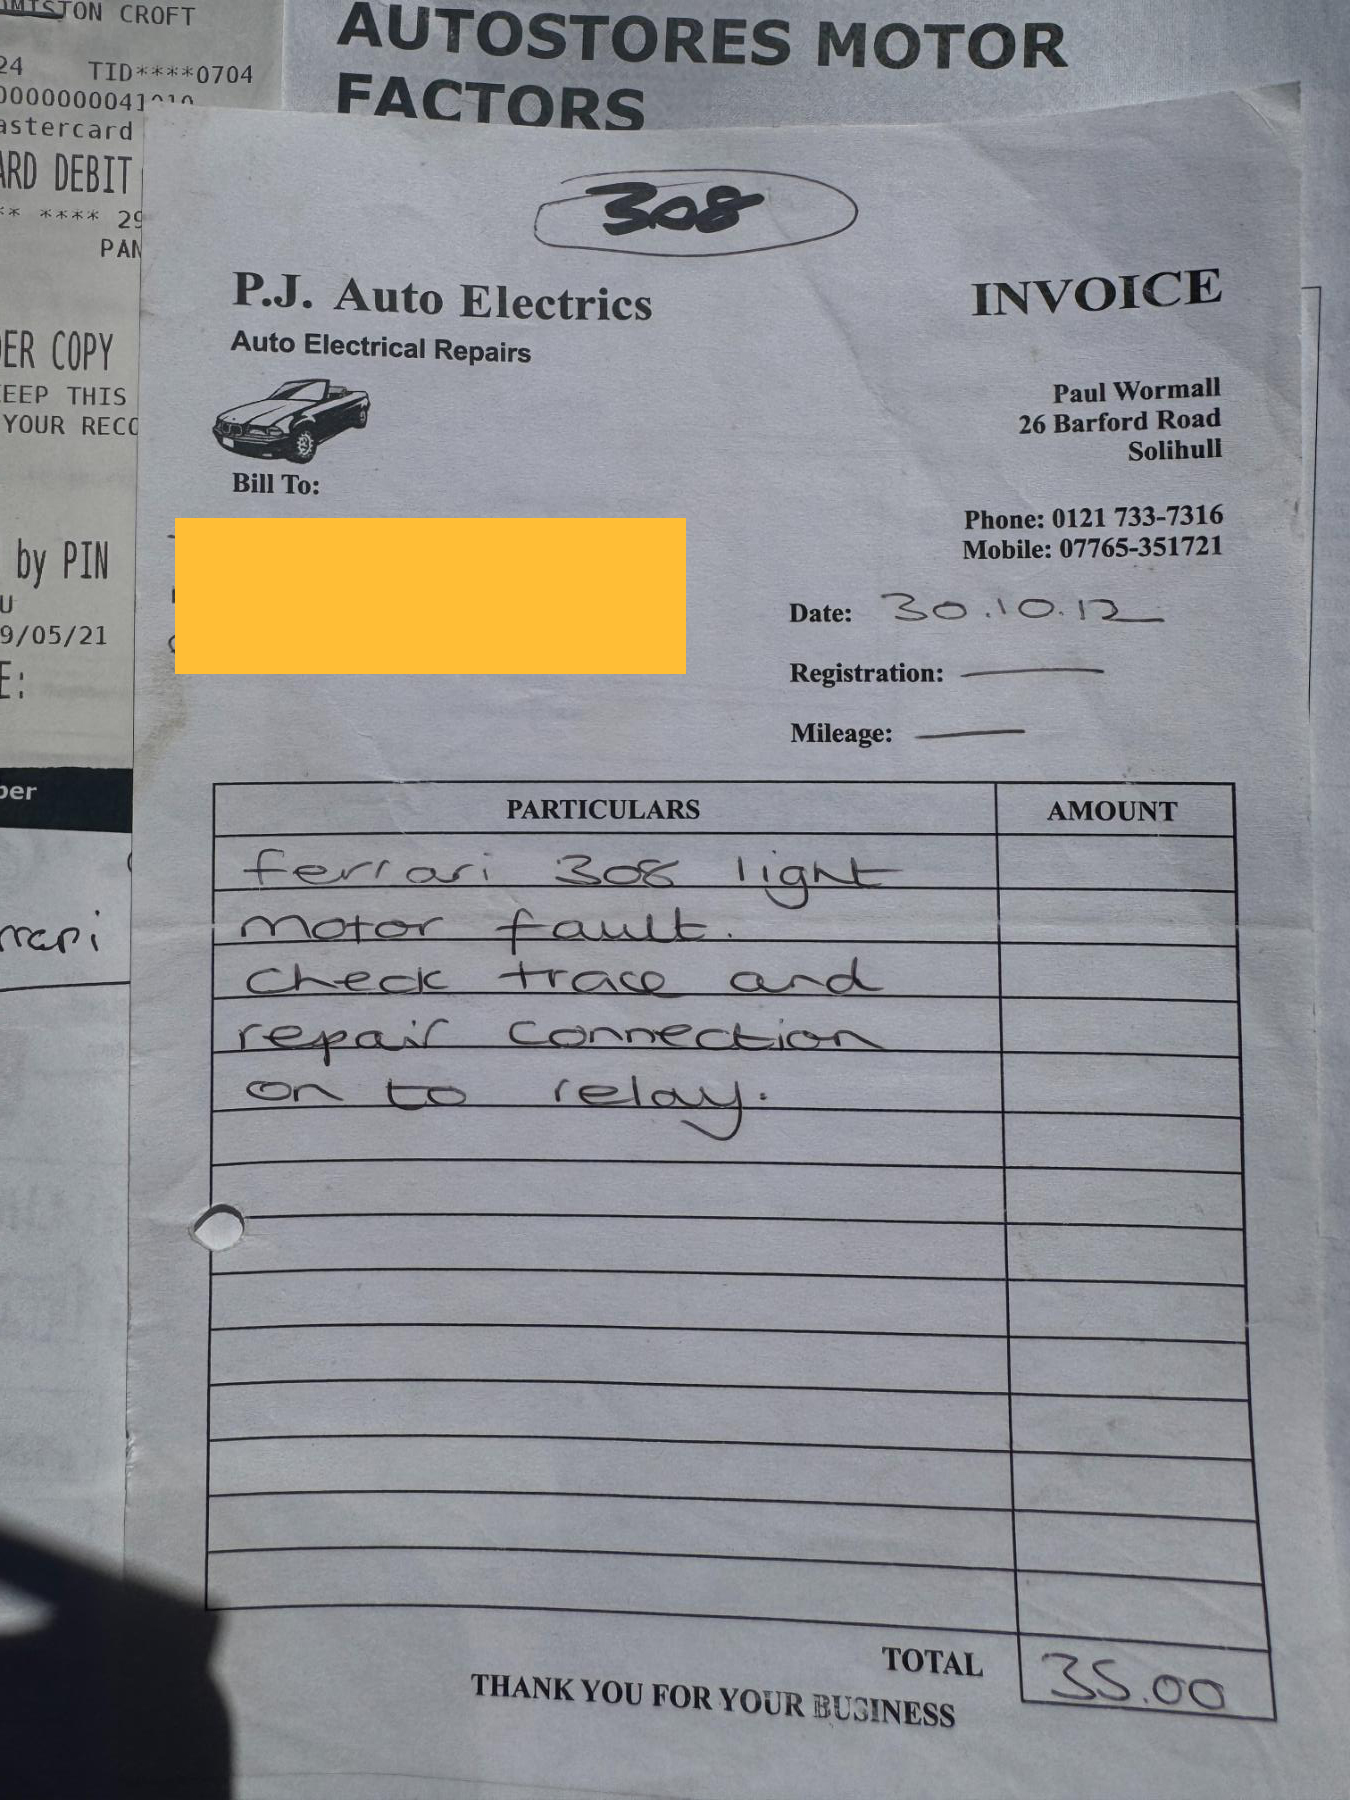 MISTON CROFT
24 TID****0704
astercard
ARD DEBIT
** **** 29
PAN
ER COPY
EEP THIS
YOUR RECO
by PIN
U
9/05/21
E:
ber
rrari
AUTOSTORES MOTOR
FACTORS
308
P.J. Auto Electrics
Auto Electrical Repairs
INVOICE
Paul Wormall
26 Barford Road
Solihull
Bill To:
Phone: 0121 733-7316
Mobile: 07765-351721
Date: 30.10.12
Registration: —
Mileage: —
PARTICULARS AMOUNT
ferrari 308 light
motor fault.
check trace and
repair connection
on to relay.
TOTAL 35.00
THANK YOU FOR YOUR BUSINESS